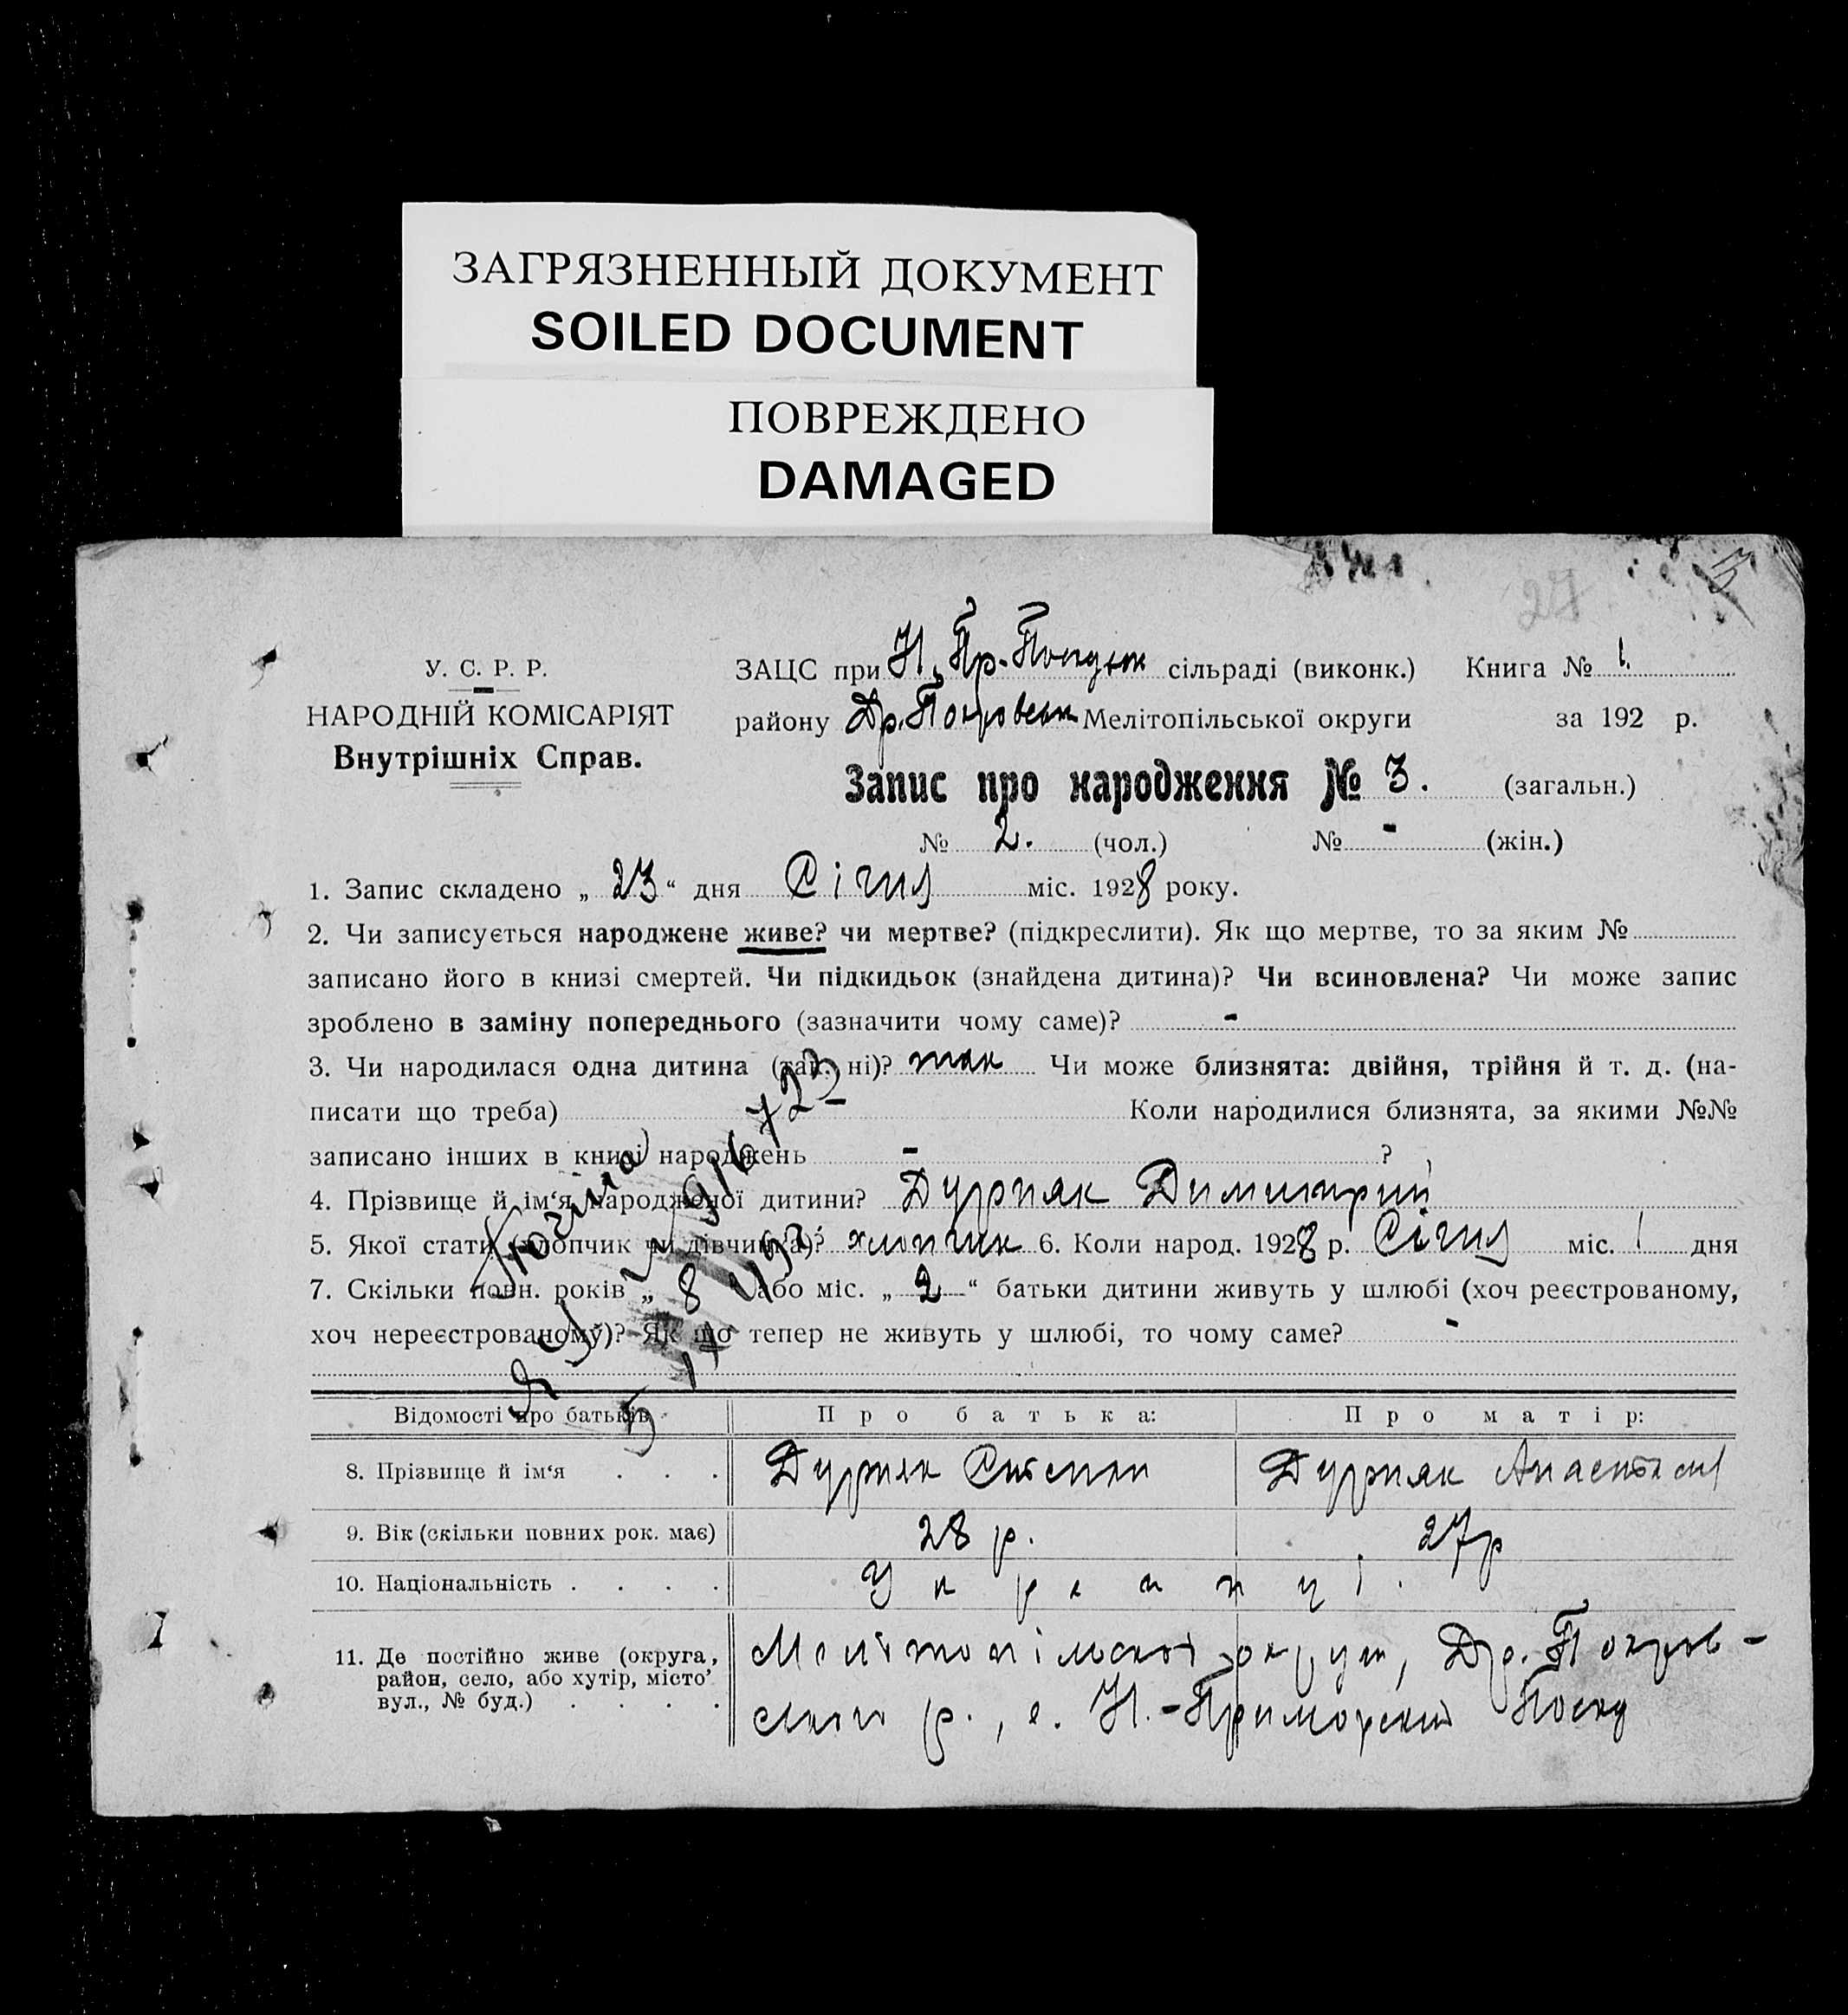 ЗАГРЯЗНЕННЫЙ ДОКУМЕНТ
SOILED DOCUMENT
ПОВРЕЖДЕНО
DAMAGED
27
3
У. С. Р. Р.
НАРОДНІЙ КОМІСАРІЯТ
Внутрішніх Справ.
ЗАЦС при Н. Пр. сільраді (виконк.) Книга № 1.
району Др. Покровськ Мелітопільської округи за 192 р.
Запис про народження № 3. (загальн.)
№ 2. (чол.) № - (жін.)
1. Запис складено „ 23 “ дня Січня міс. 1928 року.
2. Чи записується народжене живе? чи мертве? (підкреслити). Як що мертве, то за яким №
записано його в книзі смертей. Чи підкидьок (знайдена дитина)? Чи всиновлена? Чи може запис
зроблено в заміну попереднього (зазначити чому саме)? -
3. Чи народилася одна дитина (так. ні)? так Чи може близнята: двійня, трійня й т. д. (на-
писати що треба) Коли народилися близнята, за якими №№
записано інших в книзі народжень - ?
4. Прізвище й ім‘я народженої дитини? Дурняк Димитрий
5. Якої стати (хлопчик чи дівчинка)? хлопчик 6. Коли народ. 1928 р. Січня міс. 1 дня
7. Скільки повн. років „ 8 або міс. „ 2 “ батьки дитини живуть у шлюбі (хоч реєстрованому,
хоч нереєстрованому)? Як що тепер не живуть у шлюбі, то чому саме? -
Відомості про батьків Про батька: Про матір:
8. Прізвище й ім‘я . . . Дурняк Степан Дурняк Анастасія
9. Вік (скільки повних рок. має) 28 р. 27р
10. Національність . . . . Українці.
11. Де постійно живе (округа, район, село, або хутір, місто’ вул., № буд.) . . . . Мелітопільскої округи, Др. Покров-
ского р., с. Н.-Приморский Посад